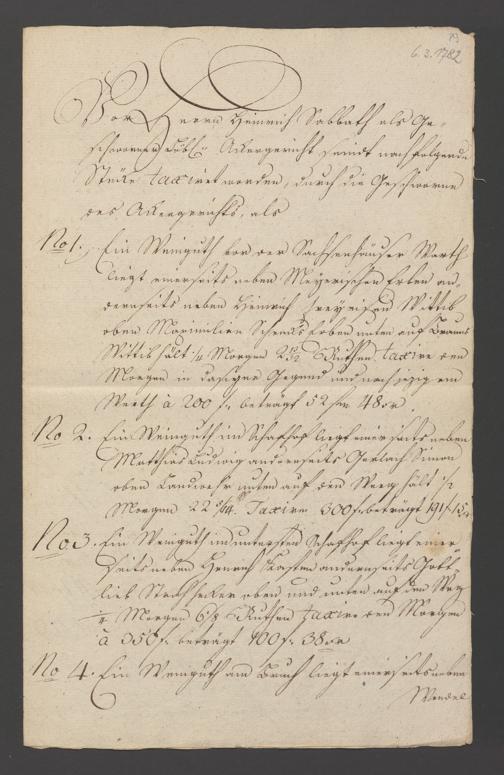 6.3.1782
Vor Herrn Heinrich Sabbath als Ge-
schwornen Ackergericht seindt nachfolgende
Stücke taxiret worden, durch die Geschworne
des Ackergerichts, als
No 1. Ein Weinguth vor der Sachsenhäuser Warth
liegt einerseits neben Meyerischen Erben an-
dernseits neben Heinrich Freyeisen Wittib
oben Maximilian Erben unten auf
Wittib hält 1/4 Morgen Ruthen taxire den
Morgen in dasiger Gegend und nach jezigem
Werth à 200 f. beträgt 52 f 48 xr.
No 2. Ein Weinguth im Schafhof liegt einerseits neben
Matthias Ludwig andernseits Gerlach Simon
oben Landwehr unten auf den Weeg hält 1/2
Morgen 22 Taxire 300 f. beträgt 191 f
No. 3. Ein Weinguth im untersten Schafhof liegt einer
seits neben Henrich andernseits Gott-
lieb oben und unten auf den Weg
1/4 Morgen Ruthen taxire den Morgen
à 350 f. beträgt 100 f. 38 xr
No 4. Ein Weinguth am Bruch liegt einerseits neben
Wendel